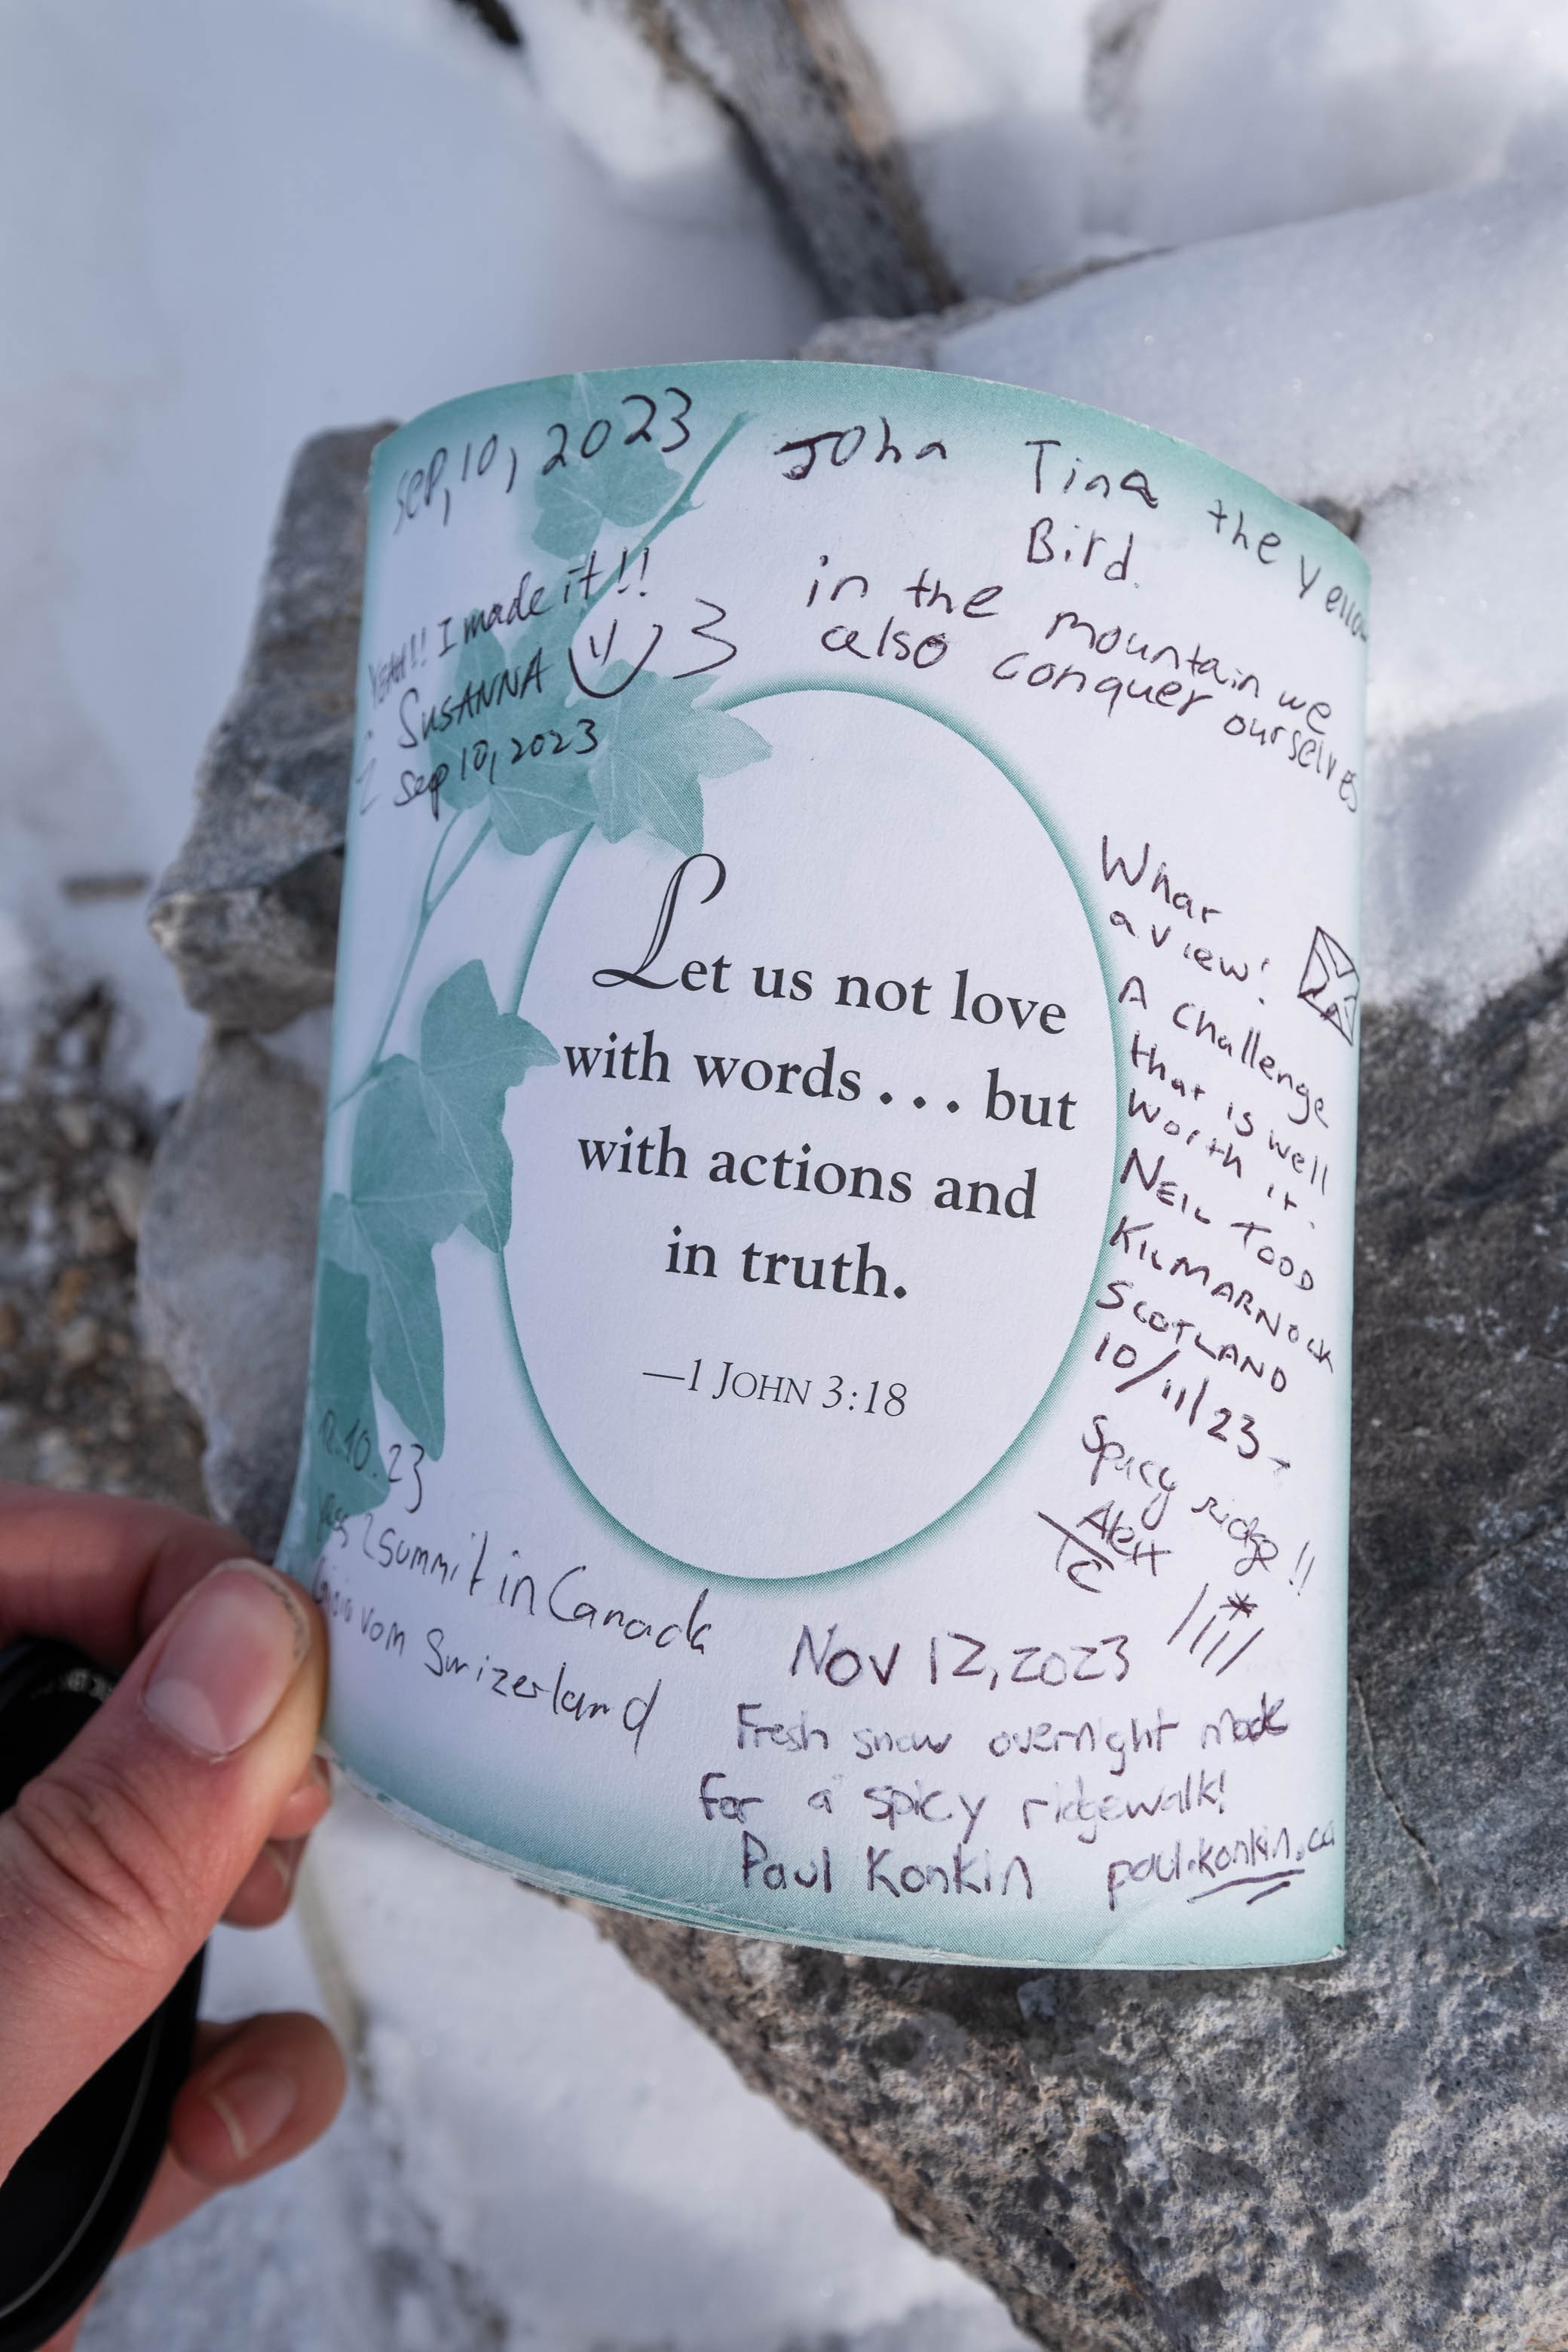 Sep, 10, 2023
YEAH!! I made it!!
SUSANNA
Sep 10, 2023
John Tina the yellow
Bird.
in the mountain we
also conquer ourselves
What
a view!
A Challenge
that is well
worth it.
NEIL TODD
KILMARNOCK
SCOTLAND
10/11/23
Spicy ridge!!
Alex
Let us not love
with words . . . but
with actions and
in truth.
—1 JOHN 3:18
10.23
summit in Canada
vom Swizerland
Nov 12, 2023
Fresh snow overnight made
for a spicy ridgewalk!
Paul Konkin paul.konkin.ca